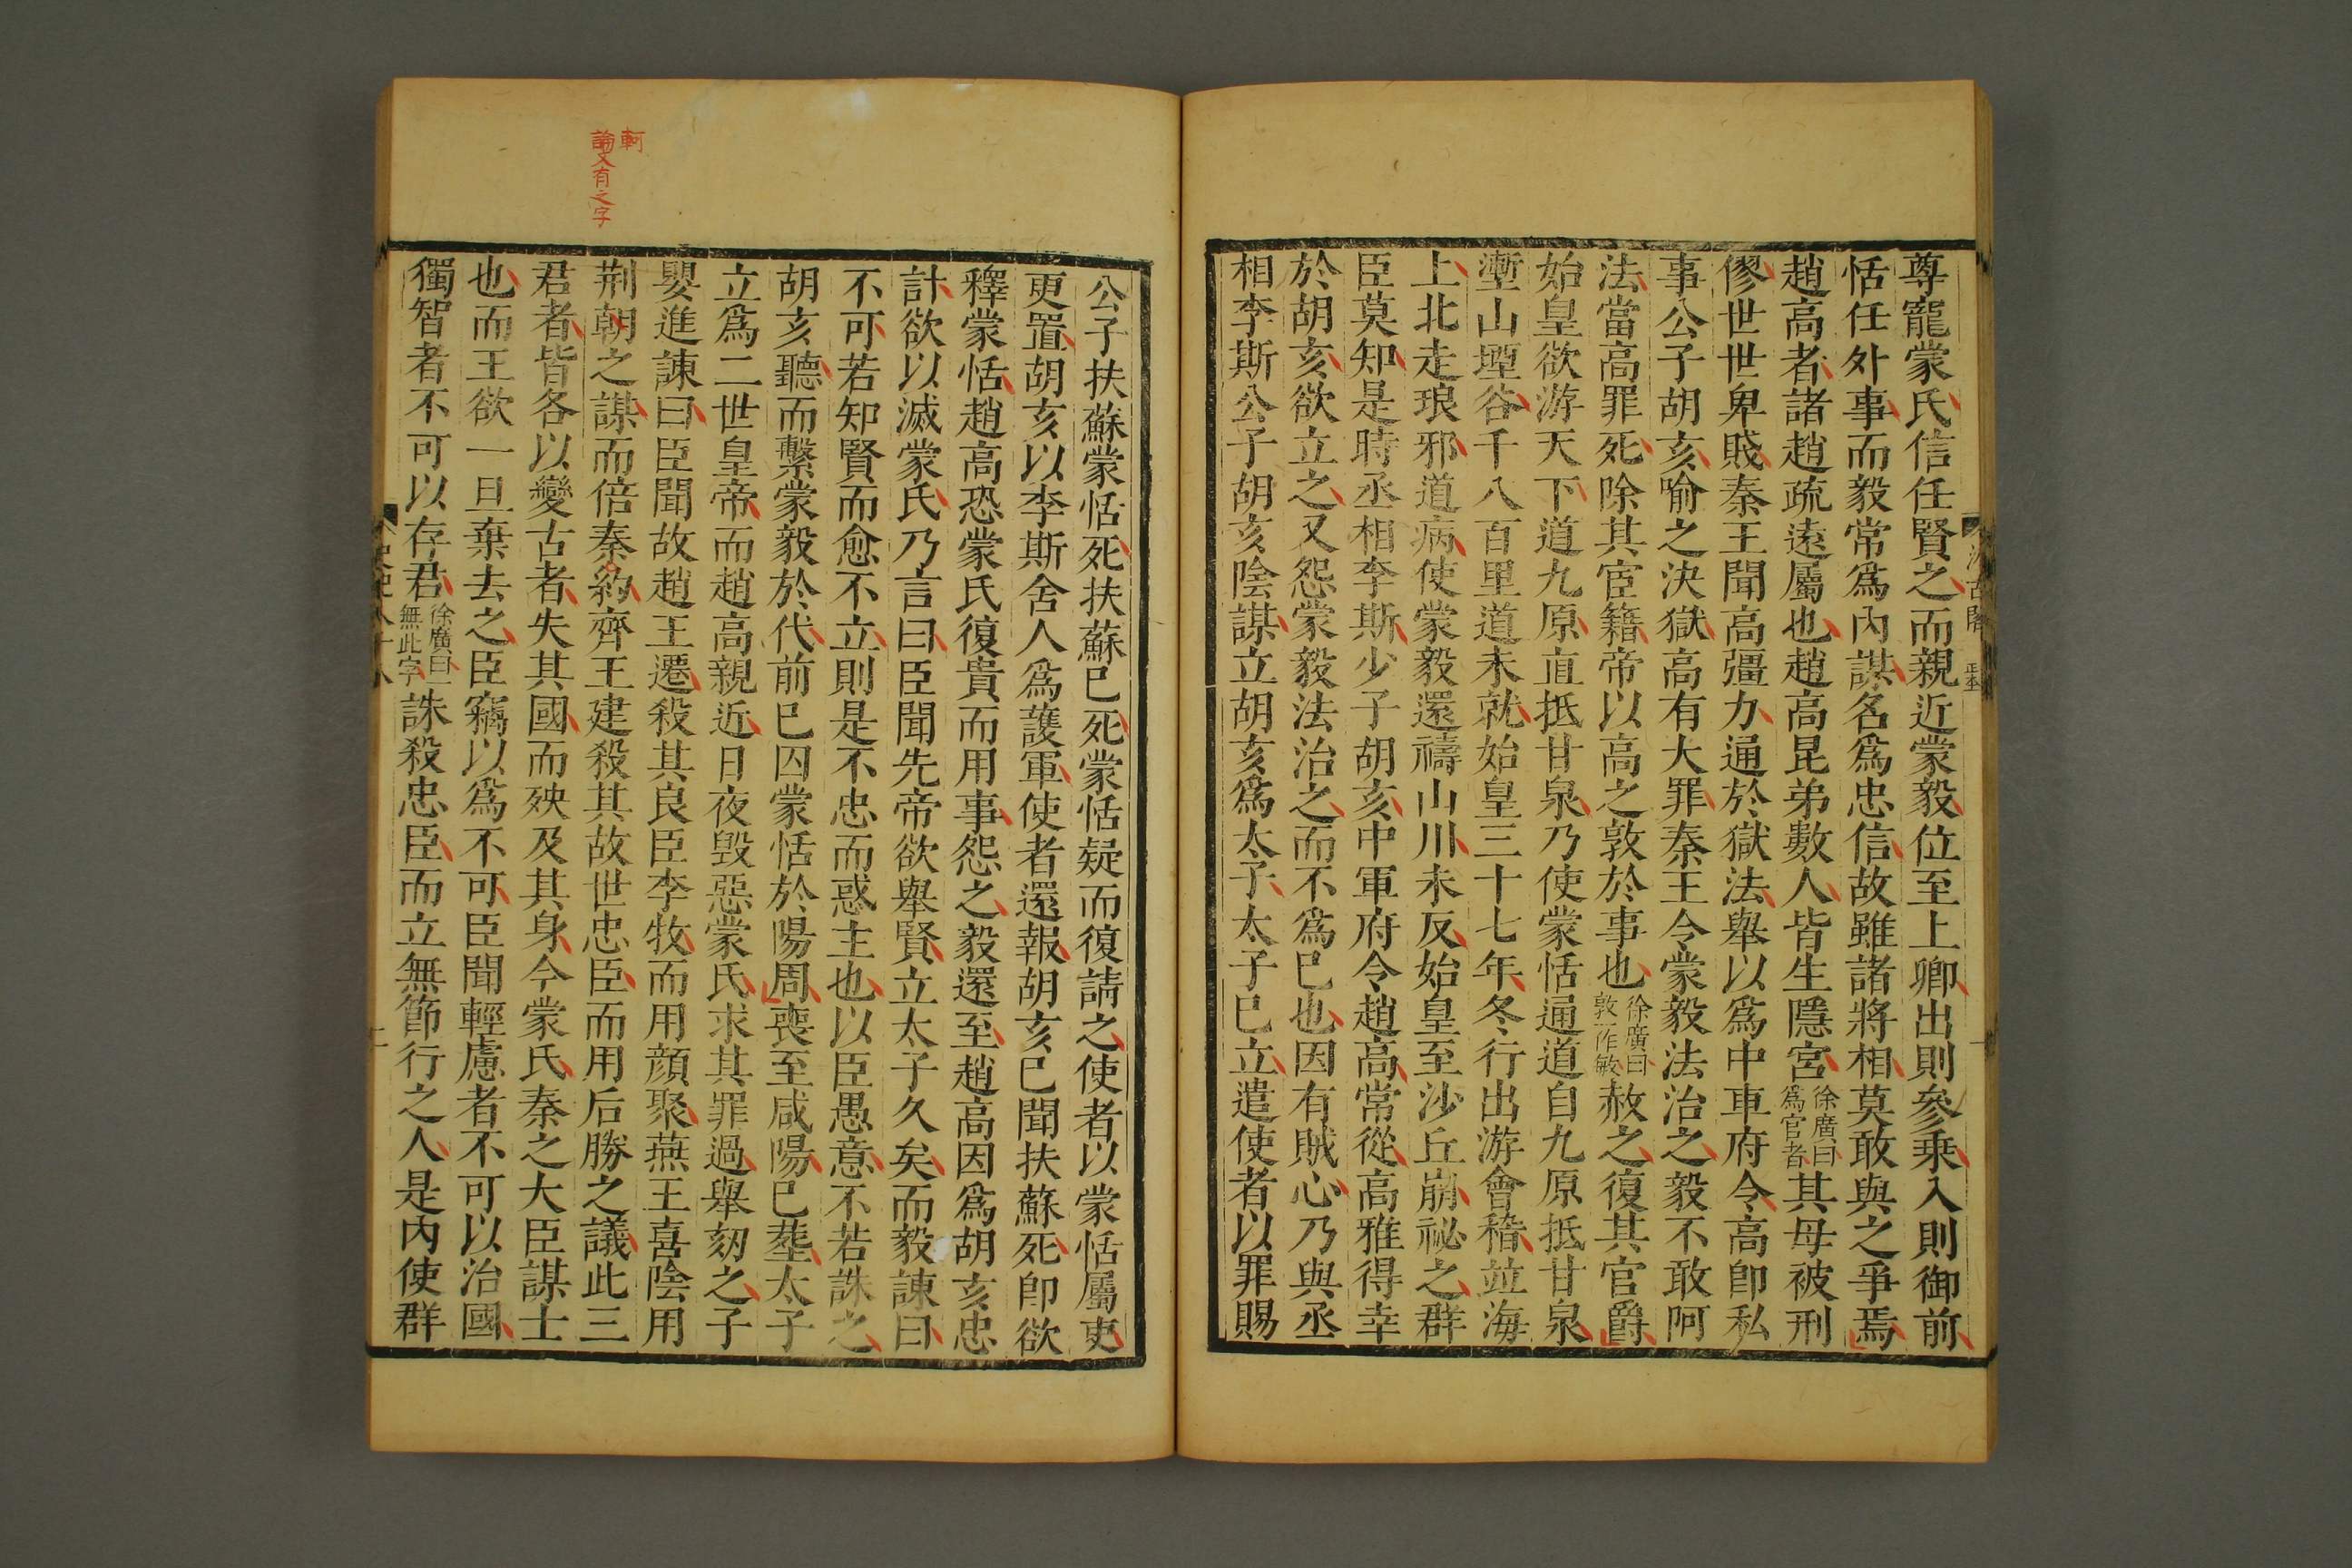 尊寵蒙氏信任賢之而親近蒙毅位至上卿出則參乘入則御前
恬任外事而毅常爲內謀名爲忠信故雖諸將相莫敢與之爭焉
趙高者諸趙疏遠屬也趙高昆弟數人皆生隱宮徐廣曰爲宦者其母被刑
僇世世卑賤秦王聞高彊力通於獄法舉以爲中車府令高卽私
事公子胡亥喻之決獄高有大罪秦王令蒙毅法治之毅不敢阿
法當高罪死除其宦籍帝以高之敦於事也徐廣曰敦一作敏赦之復其官爵
始皇欲游天下道九原直抵甘泉乃使蒙恬通道自九原抵甘泉
壍山堙谷千八百里道未就始皇三十七年冬行出游會稽竝海
上北走琅邪道病使蒙毅還禱山川未反始皇至沙丘崩祕之群
臣莫知是時丞相李斯少子胡亥中軍府令趙高常從高雅得幸
於胡亥欲立之又怨蒙毅法治之而不爲已也因有賊心乃與丞
相李斯公子胡亥陰謀立胡亥爲太子太子已立遣使者以罪賜
公子扶蘇蒙恬死扶蘇已死蒙恬疑而復請之使者以蒙恬屬吏
更置胡亥以李斯舍人爲護軍使者還報胡亥已聞扶蘇死卽欲
釋蒙恬趙高恐蒙氏復貴而用事怨之毅還至趙高因爲胡亥忠
計欲以滅蒙氏乃言曰臣聞先帝欲舉賢立太子久矣而毅諫曰
不可若知賢而愈不立則是不忠而惑主也以臣愚意不若誅之
胡亥聽而繫蒙毅於代前已囚蒙恬於陽周喪至咸陽已葬太子
立爲二世皇帝而趙高親近日夜毀惡蒙氏求其罪過舉劾之子
嬰進諫曰臣聞故趙王遷殺其良臣李牧而用顏聚燕王喜陰用
荆朝之謀而倍秦約齊王建殺其故世忠臣而用后勝之議此三
君者皆各以變古者失其國而殃及其身今蒙氏秦之大臣謀士
也而王欲一旦棄去之臣竊以爲不可臣聞輕慮者不可以治國
獨智者不可以存君徐廣曰一無此字誅殺忠臣而立無節行之人是內使群
軻
論文有之字